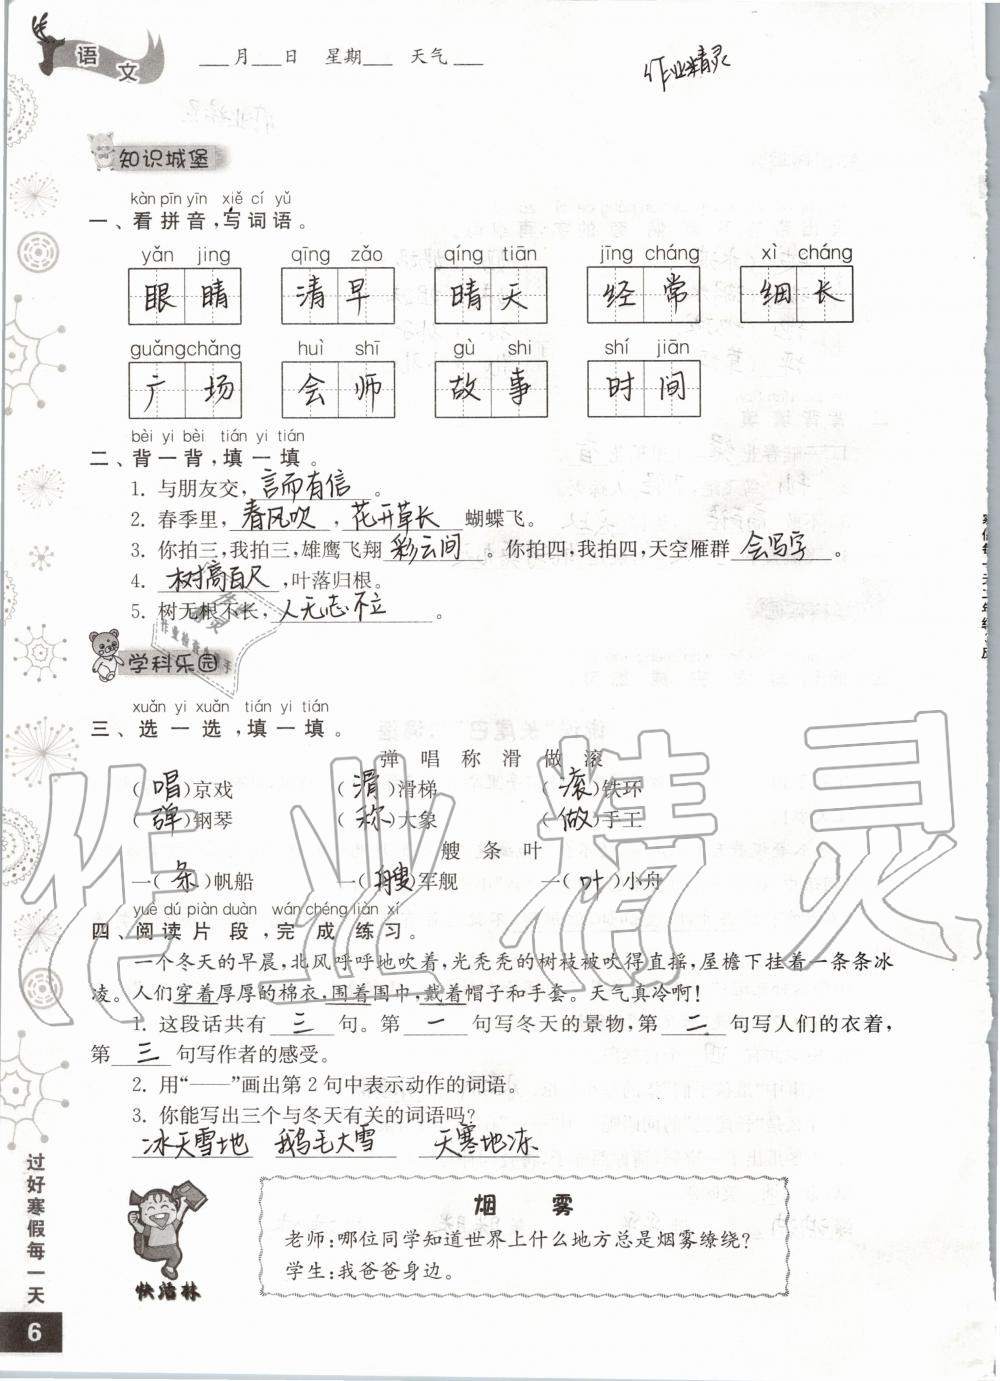 语文
___月___日 星期___ 天气___
作业精灵
知识城堡
kàn pīn yīn xiě cí yǔ
一、看拼音,写词语。
yǎn jing qīng zǎo qíng tiān jīng cháng xì cháng
眼睛 清早 晴天 经常 细长
guǎngchǎng huì shī gù shi shí jiān
广场 会师 故事 时间
bèi yi bèi tián yi tián
二、背一背,填一填。
1. 与朋友交,言而有信。
2. 春季里,春风吹,花开草长蝴蝶飞。
3. 你拍三,我拍三,雄鹰飞翔彩云间。你拍四,我拍四,天空雁群会写字。
4. 树搞百尺,叶落归根。
5. 树无根不长,人无志不立。
学科乐园
xuǎn yi xuǎn tián yi tián
三、选一选,填一填。
弹 唱 称 滑 做 滚
(唱)京戏 (滑)滑梯 (滚)铁环
(弹)钢琴 (称)大象 (做)手工
艘 条 叶
一(条)帆船 一(艘)军舰 一(叶)小舟
yuè dú piàn duàn wán chéng liàn xí
四、阅读片段,完成练习。
一个冬天的早晨,北风呼呼地吹着,光秃秃的树枝被吹得直摇,屋檐下挂着一条条冰
凌。人们穿着厚厚的棉衣,围着围巾,戴着帽子和手套。天气真冷啊!
1. 这段话共有 三 句。第 一 句写冬天的景物,第 二 句写人们的衣着,
第 三 句写作者的感受。
2. 用“——”画出第 2 句中表示动作的词语。
3. 你能写出三个与冬天有关的词语吗?
冰天雪地 鹅毛大雪 天寒地冻
烟雾
老师:哪位同学知道世界上什么地方总是烟雾缭绕?
学生:我爸爸身边。
快活林
过好寒假每一天
6
作业精灵